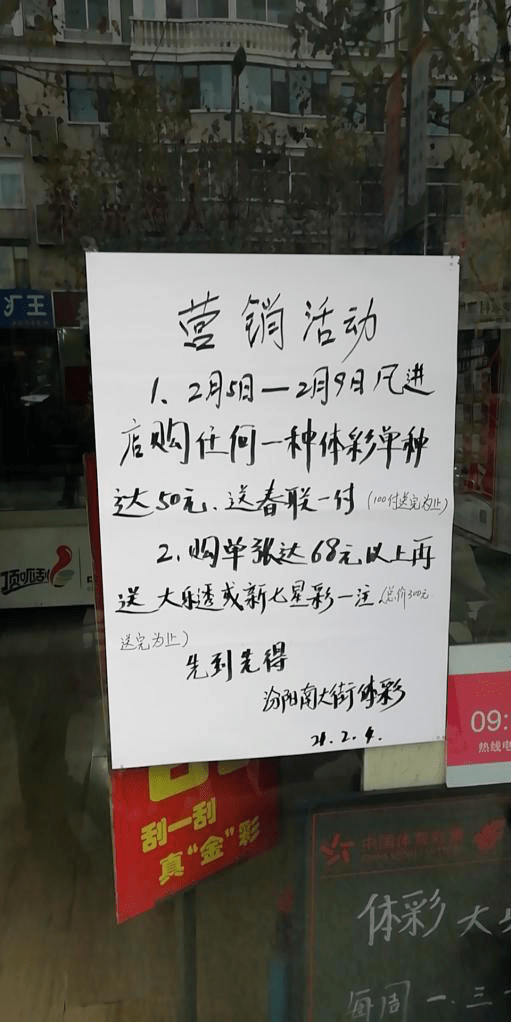 营销活动
1、2月5日—2月9日凡进
店购任何一种体彩单种
达50元、送春联一付(100付送完为止)
2、购单张达68元以上再
送大乐透或新七星彩一注(总价300元
送完为止)
先到先得
汾阳南大街体彩
21.2.4.
王
顶呱刮
刮一刮
真“金”彩
09:
热线电
中国体育彩票
体彩大
每周一.三